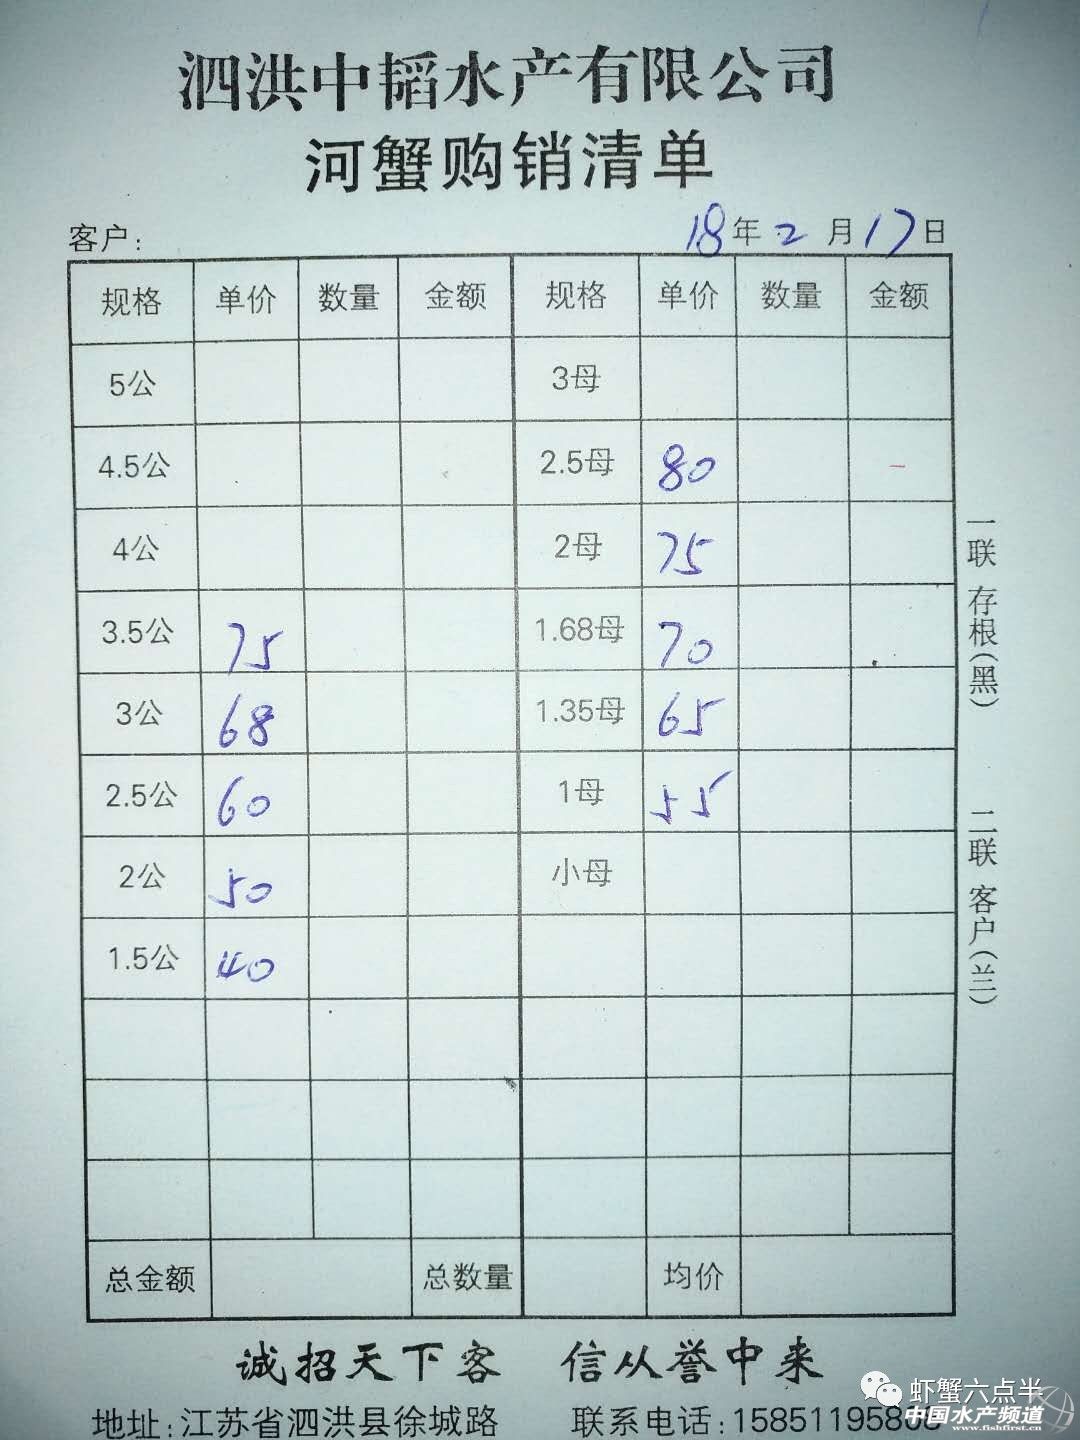 泗洪中韬水产有限公司
河蟹购销清单
客户: 18年2月17日
规格 单价 数量 金额 规格 单价 数量 金额
5公 3母
4.5公 2.5母 80
4公 2母 75
3.5公 75 1.68母 70
3公 68 1.35母 65
2.5公 60 1母 55
2公 50 小母
1.5公 40
总金额 总数量 均价
一联 存根(黑) 二联 客户(兰)
诚招天下客 信从誉中来
虾蟹六点半
地址:江苏省泗洪县徐城路 联系电话:15851195868
中国水产频道
www.fishfirst.cn